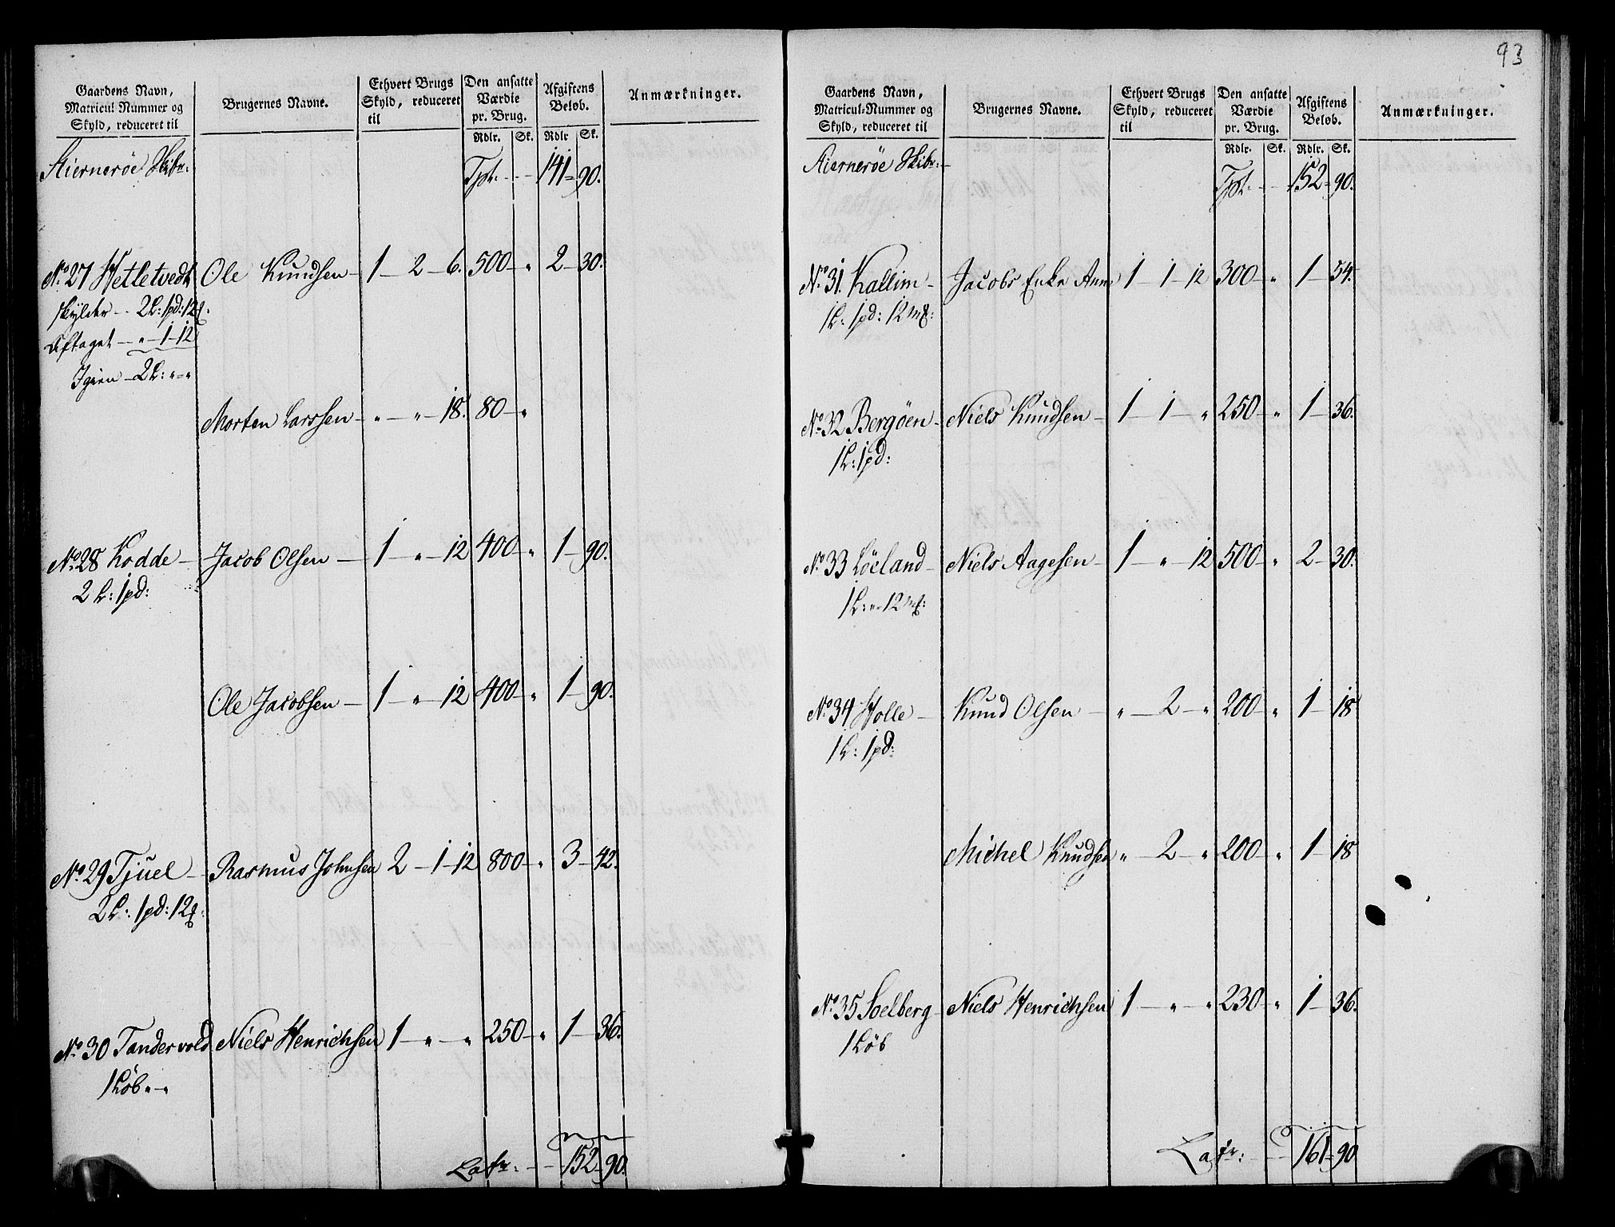 93
Gaardens Navn, Matricul-Nummer og Skyld, reduceret til | Brugernes Navne. | Ethvert Brugs Skyld, reduceret til | Den ansatte Værdie pr. Brug. Rdlr. Sk. | Afgiftens Beløb. Rdlr Sk. | Anmærkninger.
Stiernerøe Skibr: Tpt. - - 141 - 90.
No. 27 Hetletvedt Ole Knudsen - 1 - 2 - 6. 500 - " 2 - 30.
skylder - - 2 L: 1 pd: 12
Aftaget - " - 1 - 12
Igien - 2 L: " - "
Morten Larssen - " - " - 18. 80 - "
No. 28 Kodde - Jacob Olsen - 1 - " - 12 400 - " 1 - 90.
2 L: 1 pd:
Ole Jacobsen - 1 - " - 12 400 - " 1 - 90.
No. 29 Tjuel - Rasmus Johnsen 2 - 1 - 12 800 - " 3 - 42.
2 L: 1 pd: 12
No. 30 Tandervold Niels Henrichsen 1 - " - " 250 - " 1 - 36.
1 Løb " - "
Latr: - - 152 - 90.
Gaardens Navn, Matricul-Nummer og Skyld, reduceret til | Brugernes Navne. | Ethvert Brugs Skyld, reduceret til | Den ansatte Værdie pr. Brug. Rdlr. Sk. | Afgiftens Beløb. Rdlr. Sk. | Anmærkninger.
Stiernerøe Skibr: - Tpt. - - 152 - 90.
No. 31. Kallim - Jacobs Enke Anne 1 - 1 - 12 300 - " 1 - 54.
1 L: 1 pd: 12 m:
No. 32 Bergøen - Niels Knudsen - 1 - 1 - " 250 - " 1 - 36.
1 L: 1 pd:
No. 33 Løeland - Niels Aagesen - 1 - " - 12 500 - " 2 - 30.
1 L: " - 12 m:
No. 34 Holle - Knud Olsen - " - 2 - " 200 - " 1 - 18
1 L: 1 pd:
Michel Knudsen " - 2 - " 200 - " 1 - 18
No. 35 Soelberg - Niels Henrichsen 1 - " - " 230 - " 1 - 36.
1 Løb
Latr: - - 161 - 90